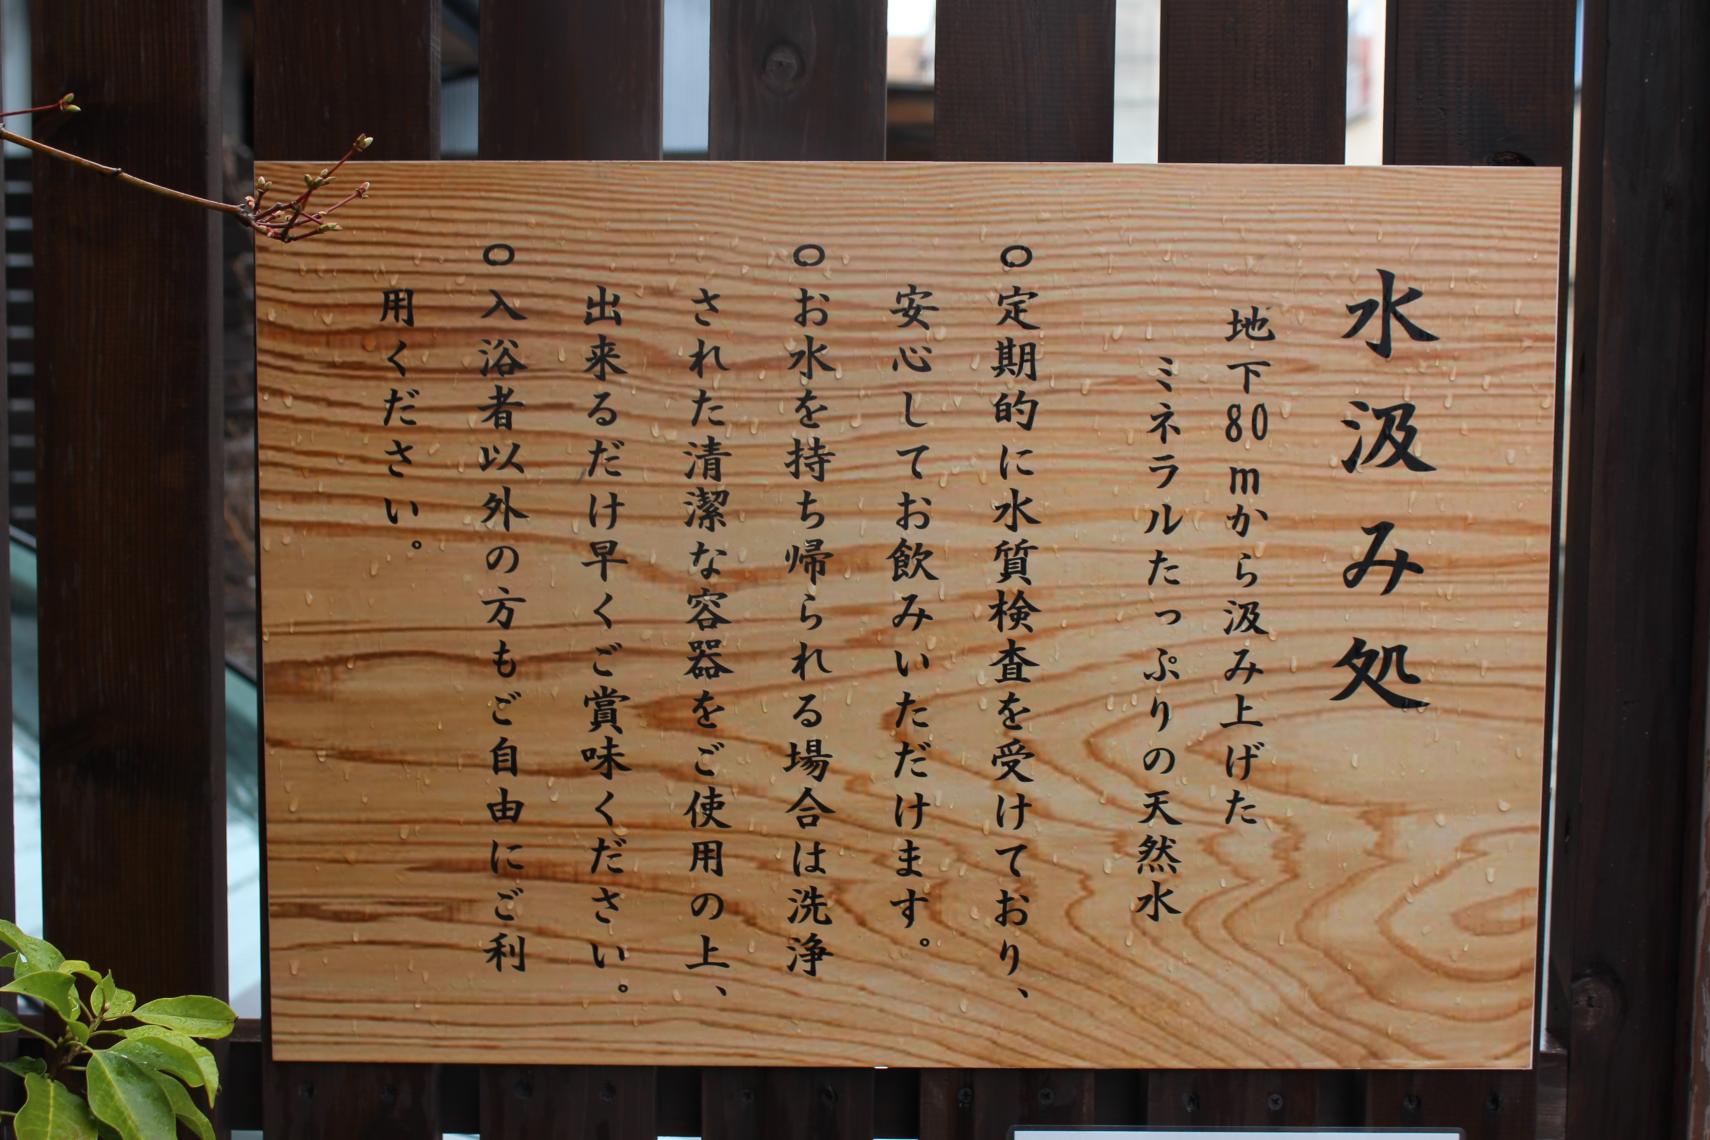 水汲み処
地下80mから汲み上げた
ミネラルたっぷりの天然水
○定期的に水質検査を受けており、
安心してお飲みいただけます。
○お水を持ち帰られる場合は洗浄
された清潔な容器をご使用の上、
出来るだけ早くご賞味ください。
○入浴者以外の方もご自由にご利
用ください。